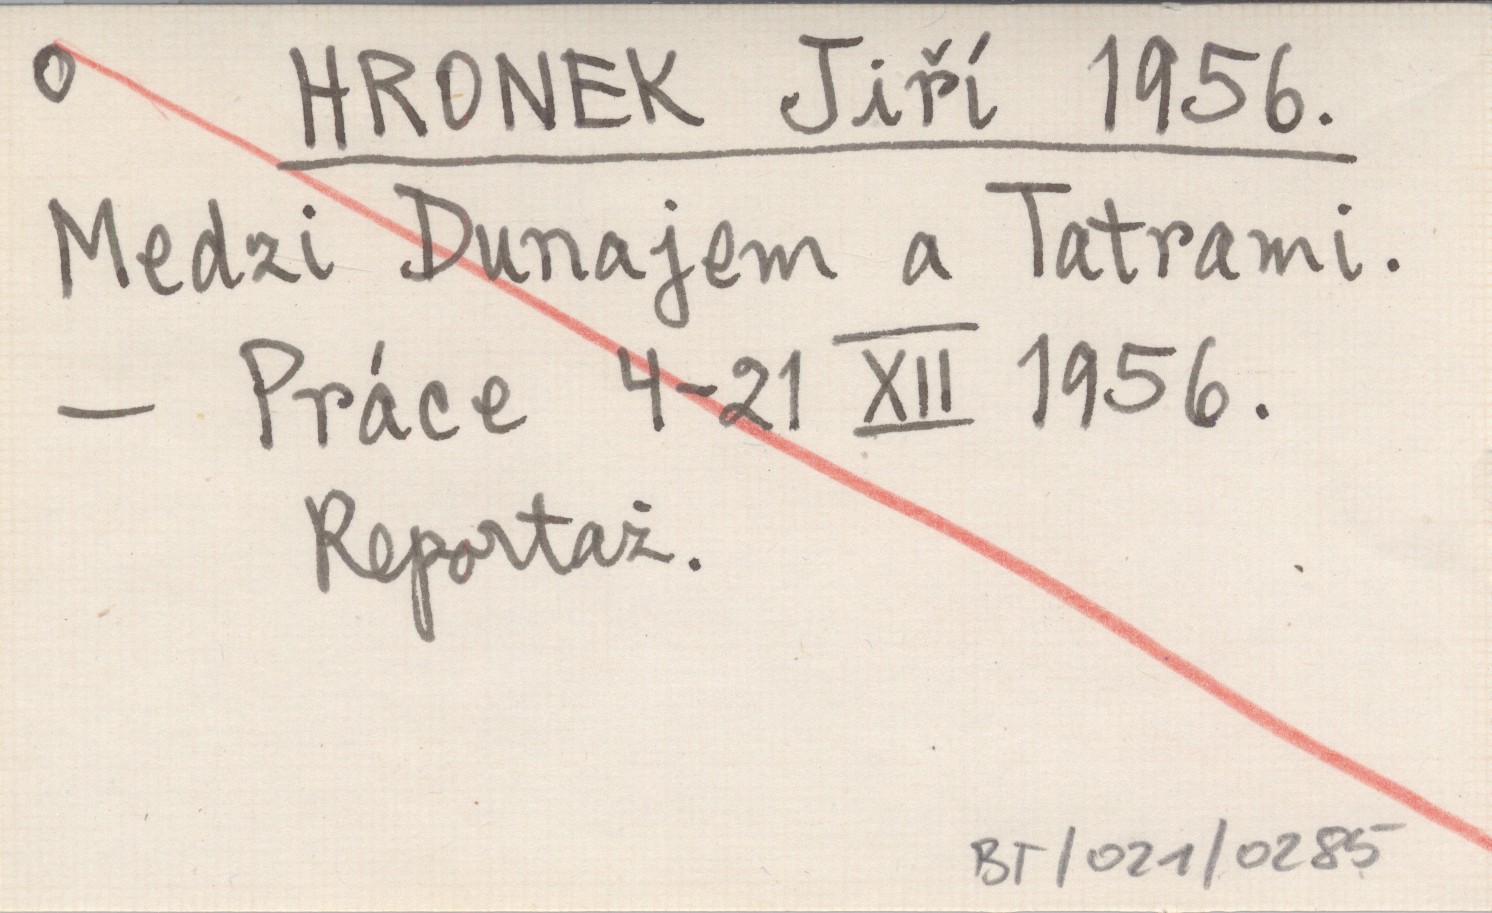 o HRONEK Jiří 1956.
Medzi Dunajem a Tatrami.
— Práce 4-21 XII 1956.
Reportaż.
BT/021/0285